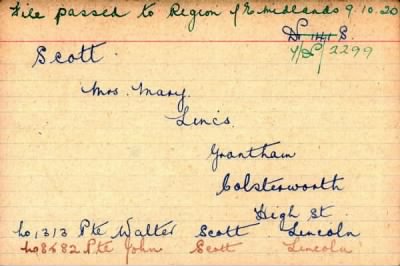 File passed to Region of E. midlands 9.10.20
S.
4/SP/2299
Scott
Mrs. Mary.
Lincs.
Grantham
Colsterworth
High St.
401313 Pte Walter Scott Lincoln
Pte John Scott Lincoln